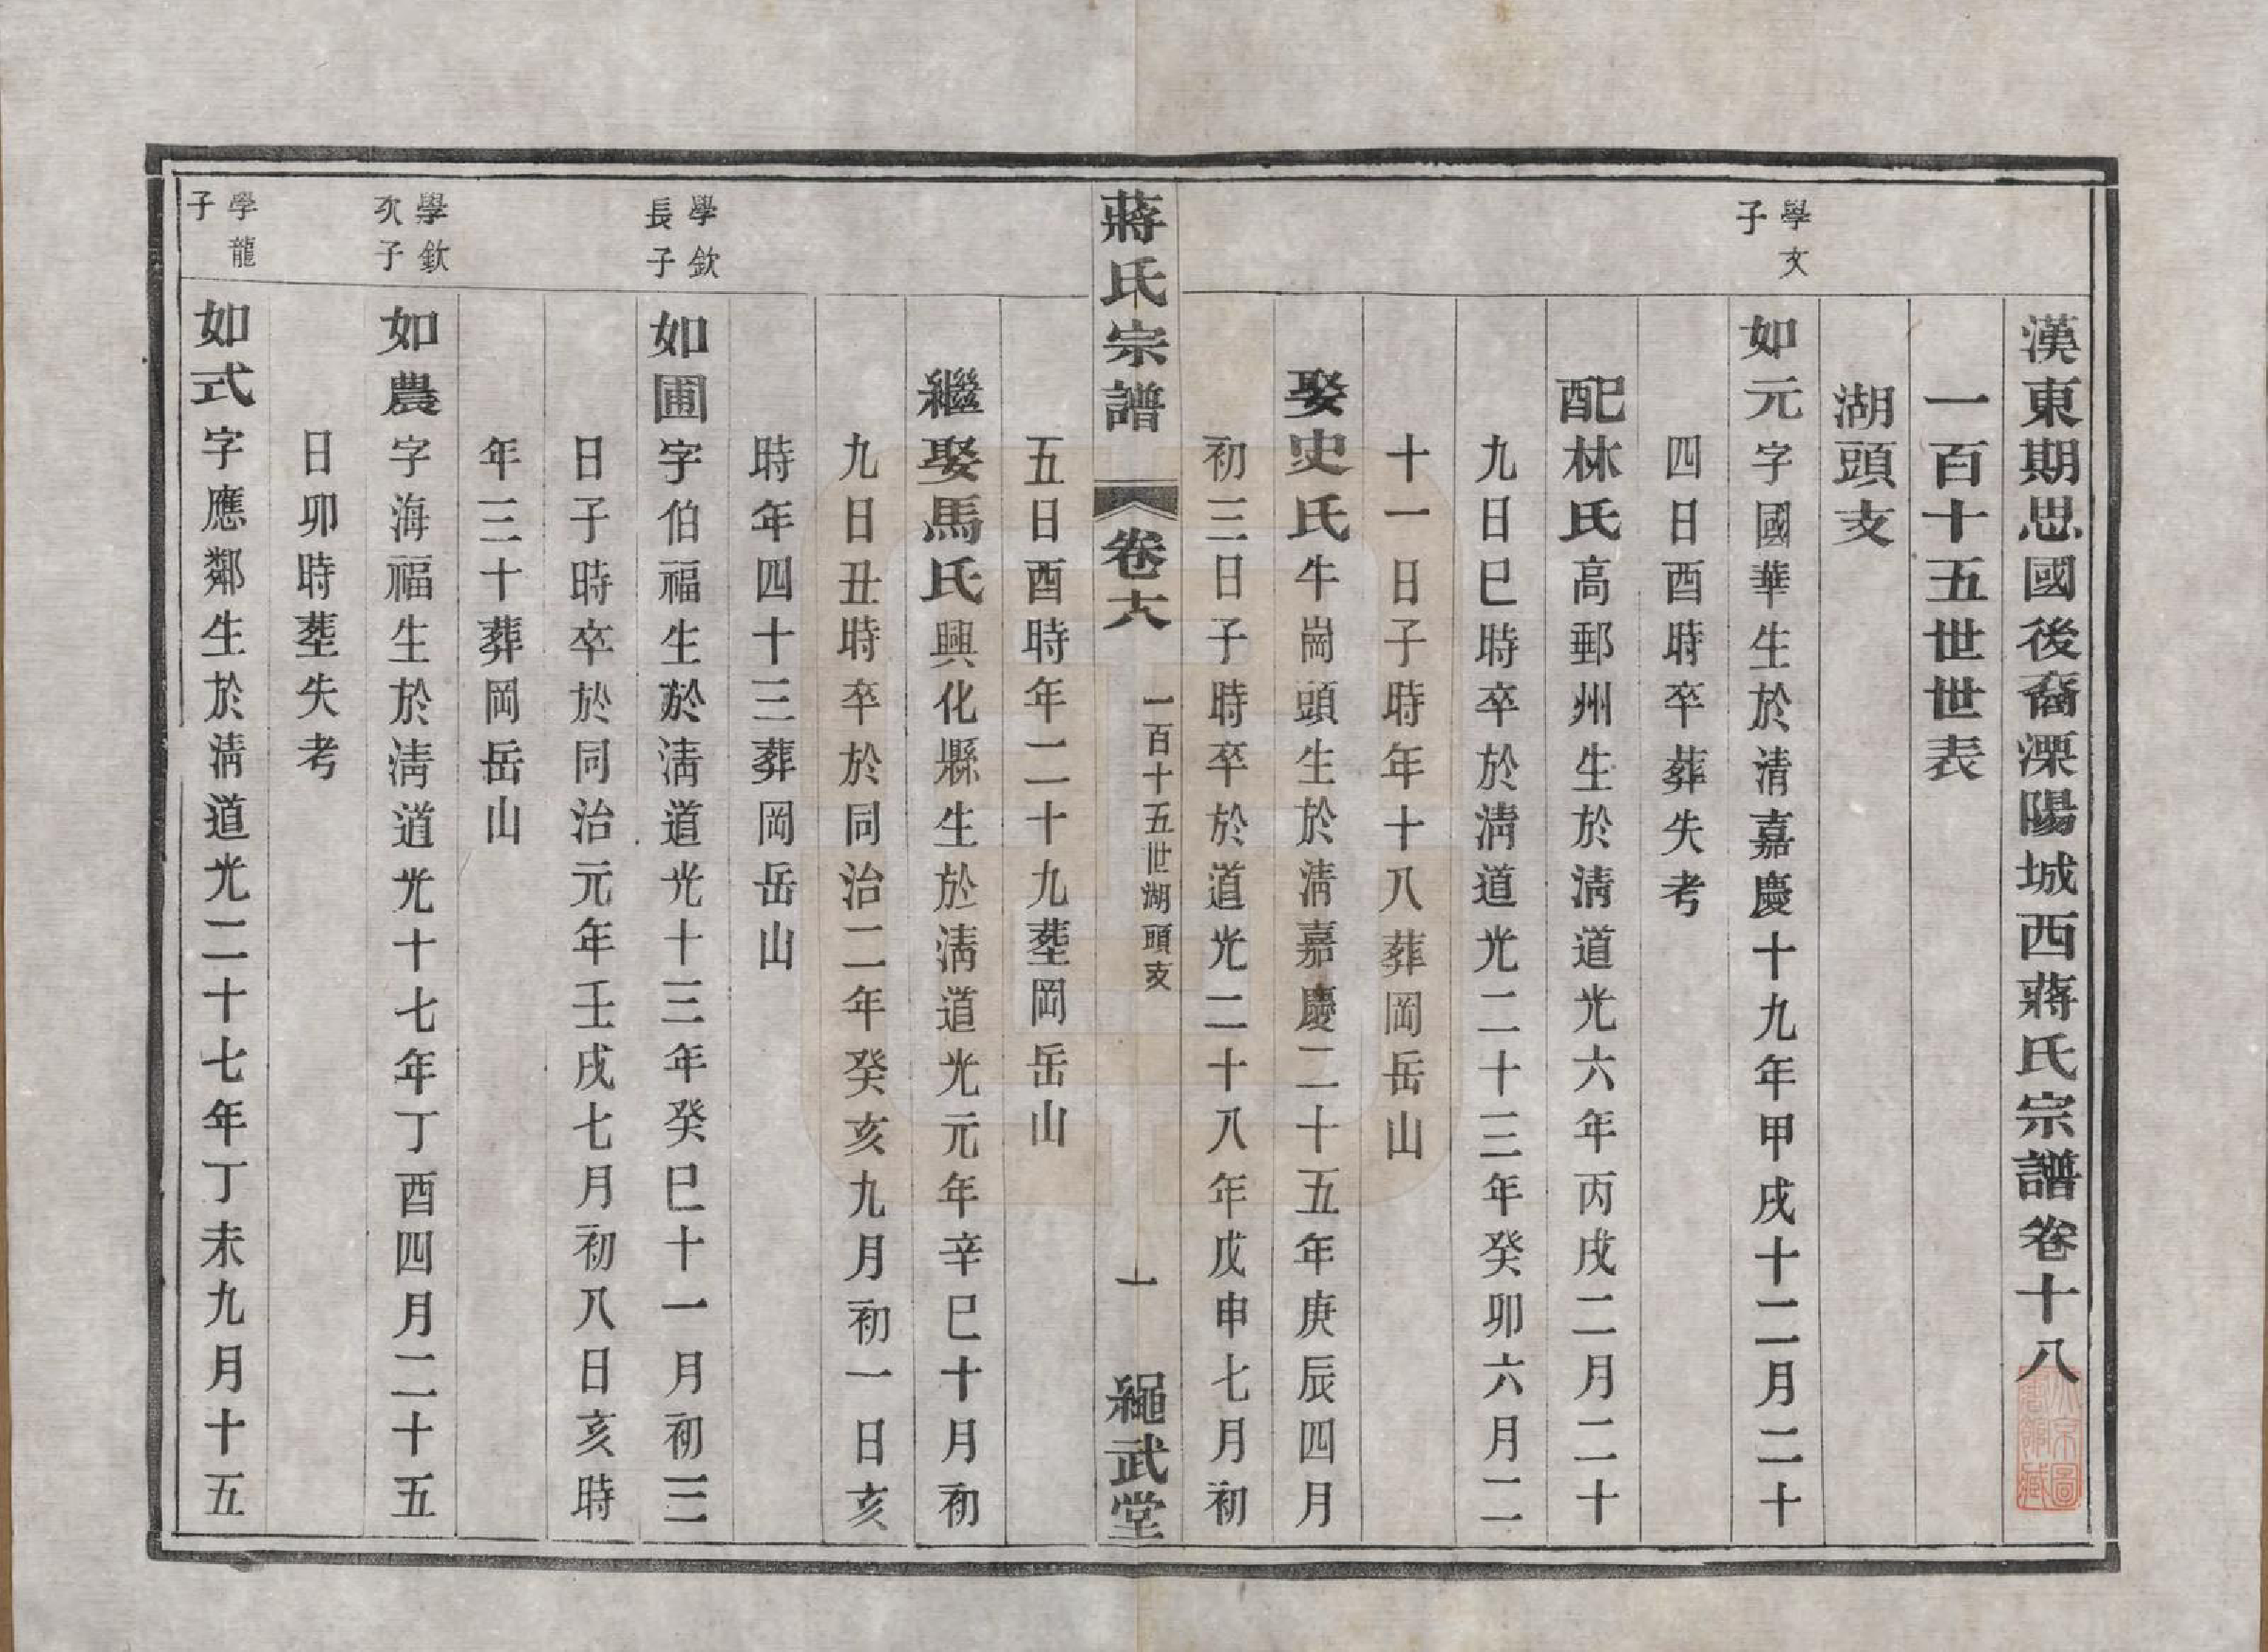 漢東期思國後裔溧陽城西蔣氏宗譜卷十八
一百十五世世表
湖頭支
學文
子
如元字國華生於清嘉慶十九年甲戌十二月二十
四日酉時卒葬失考
配林氏高郵州生於清道光六年丙戌二月二十
九日巳時卒於清道光二十三年癸卯六月二
十一日子時年十八葬岡岳山
娶史氏牛崗頭生於清嘉慶二十五年庚辰四月
初三日子時卒於道光二十八年戊申七月初
蔣氏宗譜 卷十八 一百十五世湖頭支 一 繩武堂
五日酉時年二十九塟岡岳山
繼娶馬氏興化縣生於清道光元年辛巳十月初
九日丑時卒於同治二年癸亥九月初一日亥
時年四十三葬岡岳山
學欽
長子
如圃字伯福生於清道光十三年癸巳十一月初三
日子時卒於同治元年壬戌七月初八日亥時
年三十葬岡岳山
學欽
次子
如農字海福生於清道光十七年丁酉四月二十五
日卯時塟失考
學龍
子
如式字應鄰生於清道光二十七年丁未九月十五